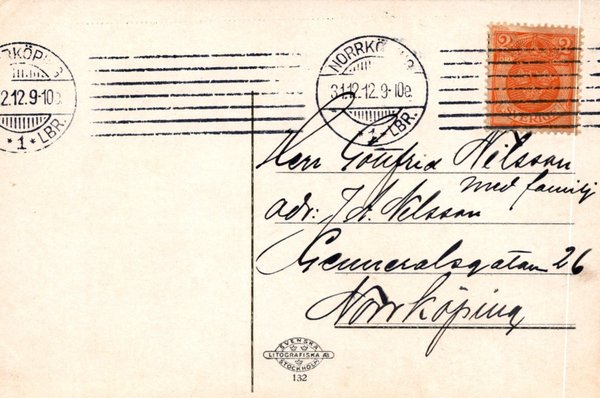 NORRKÖPING
2.12.9-10e.
*1* LBR.
NORRKÖPING
31.12.12.9-10e.
*1* LBR.
2 2
SVERIGE
Herr Gottfrid Nilsson
med familj
adr: J. A. Nilsson
Genneralsgatan 26
Norrköping
SVENSKA
LITOGRAFISKA AB
STOCKHOLM
132